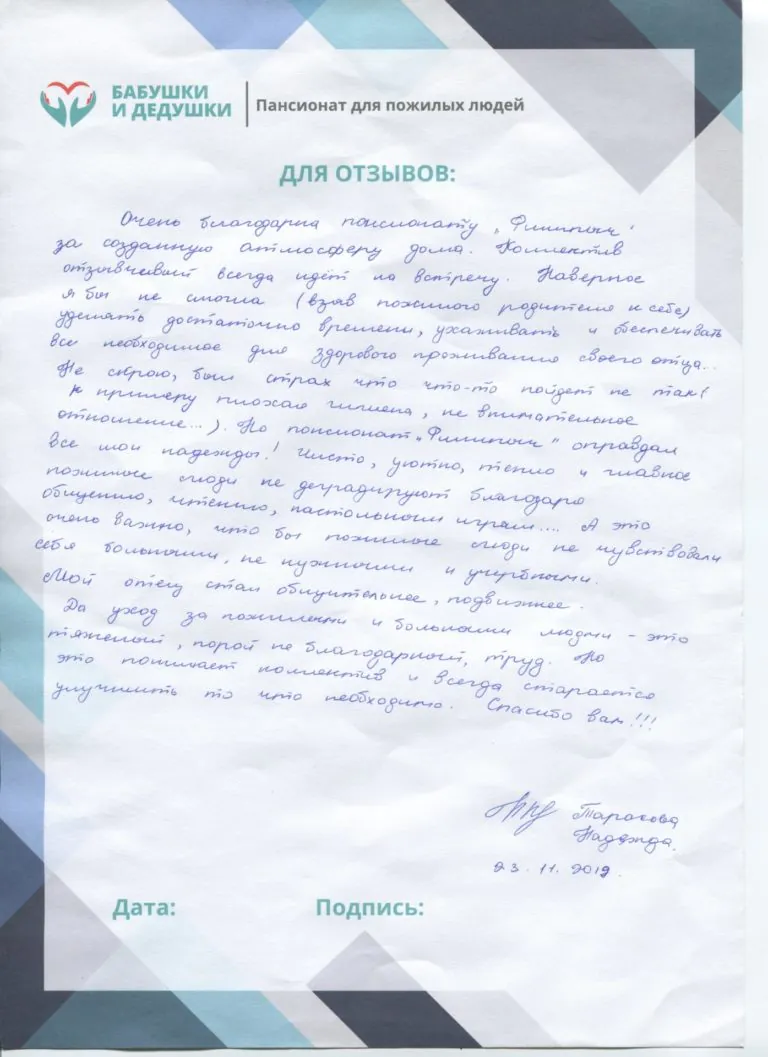 БАБУШКИ
И ДЕДУШКИ
Пансионат для пожилых людей
ДЛЯ ОТЗЫВОВ:
Очень благодарна пансионату „Филиппок"
за созданную атмосферу дома. Коллектив
отзывчивый всегда идёт на встречу. Наверное
я бы не смогла (взяв пожилого родителя к себе)
уделять достаточно времени, ухаживать и обеспечивать
все необходимое для здорового проживания своего отца...
Не скрою, был страх что что-то пойдет не так(
к примеру плохая гигиена, не внимательное
отношение...). Но пансионат „Филиппок" оправдал
все мои надежды! Чисто, уютно, тепло и главное
пожилые люди не деградируют благодаря
общению, чтению, настольным играм.... А это
очень важно, что бы пожилые люди не чувствовали
себя больными, не нужными и ущербными.
Мой отец стал общительнее, подвижнее.
Да уход за пожилыми и больными людми - это
тяжелый, порой не благодарный, труд. Но
это понимает коллектив и всегда старается
улучшить то что необходимо. Спасибо вам!!!
Тарасова
Надежда.
23.11.2019.
Дата:
Подпись: